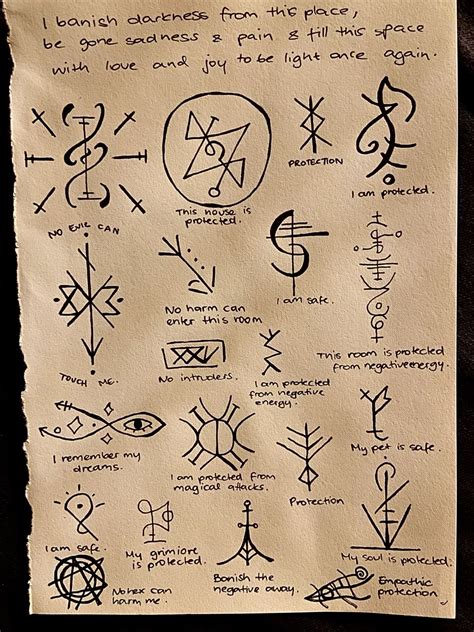 I banish darkness from this place,
be gone sadness & pain & fill this space
with love and joy to be light once again.
PROTECTION
I am protected.
This house is
protected.
NO EVIL CAN
I am safe.
No harm can
enter this room
This room is protected
from negative energy.
No intruders.
I am protected
from negative
energy.
TOUCH ME.
My pet is safe.
I remember my
dreams.
I am protected from
magical attacks.
Protection
I am safe.
My grimiore
is protected.
My soul is protected.
Banish the
negative away.
No hex can
harm me.
Empathic
protection